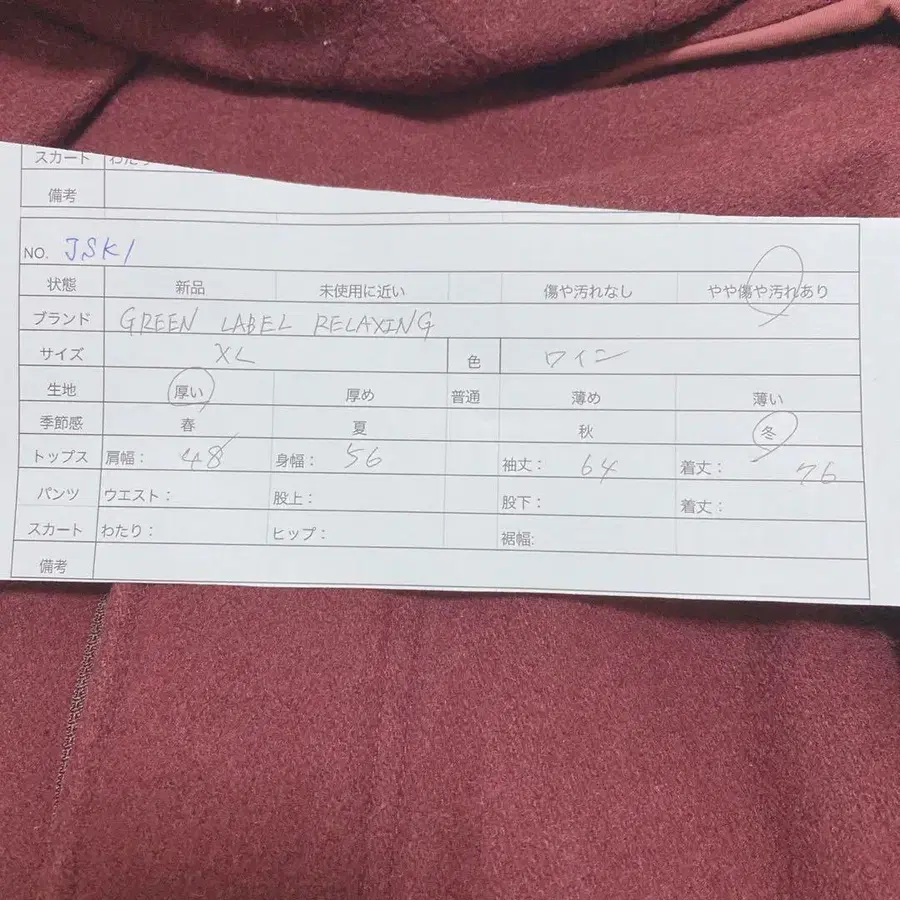 スカート わたり
備考
NO. JSK1
状態 新品 未使用に近い 傷や汚れなし やや傷や汚れあり
ブランド GREEN LABEL RELAXING
サイズ XL 色 ワイン
生地 厚い 厚め 普通 薄め 薄い
季節感 春 夏 秋 冬
トップス 肩幅: 48 身幅: 56 袖丈: 64 着丈: 76
パンツ ウエスト: 股上: 股下: 着丈:
スカート わたり: ヒップ: 裾幅:
備考